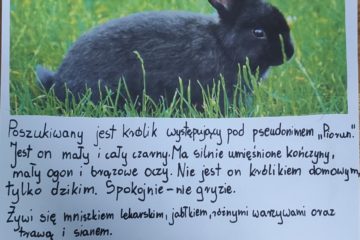 Poszukiwany jest królik występujący pod pseudonimem „Piorun".
Jest on mały i cały czarny. Ma silnie umięśnione kończyny,
mały ogon i brązowe oczy. Nie jest on królikiem domowym,
tylko dzikim. Spokojnie - nie gryzie.
Żywi się mniszkiem lekarskim, jabłkiem, różnymi warzywami oraz
trawą i sianem.